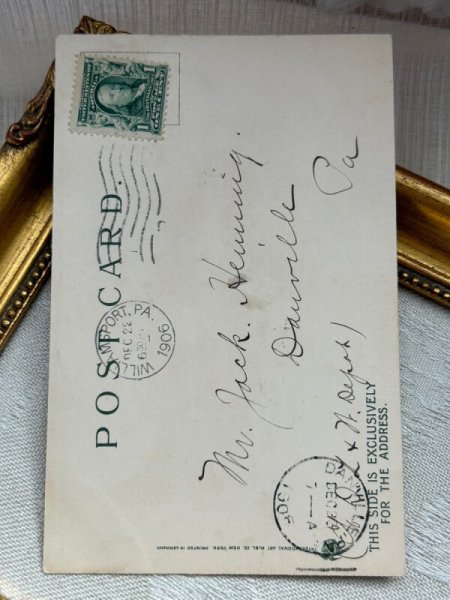 POST CARD.
WILLIAMSPORT, PA.
DEC 22
1906
Mr. Jack. Henning.
Danville
Pa
D L & W. Depot)
DEC
7 - A
THIS SIDE IS EXCLUSIVELY
FOR THE ADDRESS.
INTERNATIONAL ART PUBL. CO. NEW YORK. PRINTED IN GERMANY.